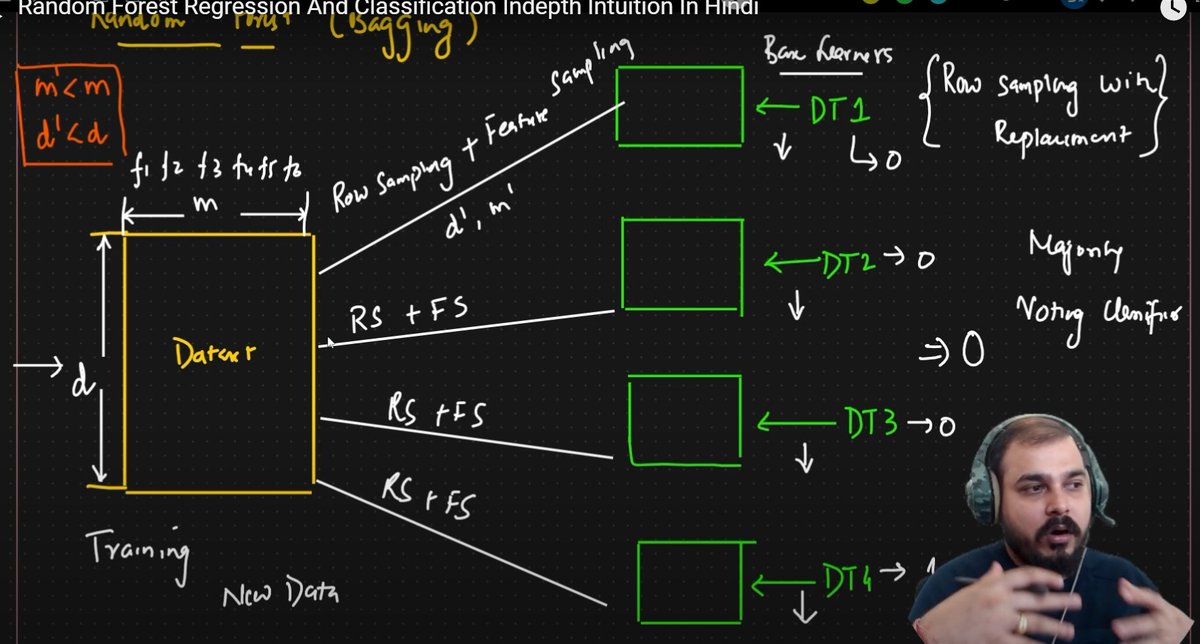 Random Forest Regression And Classification Indepth Intuition In Hindi
Random Forest (Bagging)
m'<m
d'<d
f1 f2 f3 f4 f5 f6
m
d
Dataset
Training
New Data
Row Sampling + Feature Sampling
d', m'
RS + FS
RS + FS
RS + FS
Base Learners
DT1
0
DT2 → 0
DT3 → 0
DT4 → 1
{Row Sampling with
Replacement}
Majority
Voting Classifier
⇒ 0